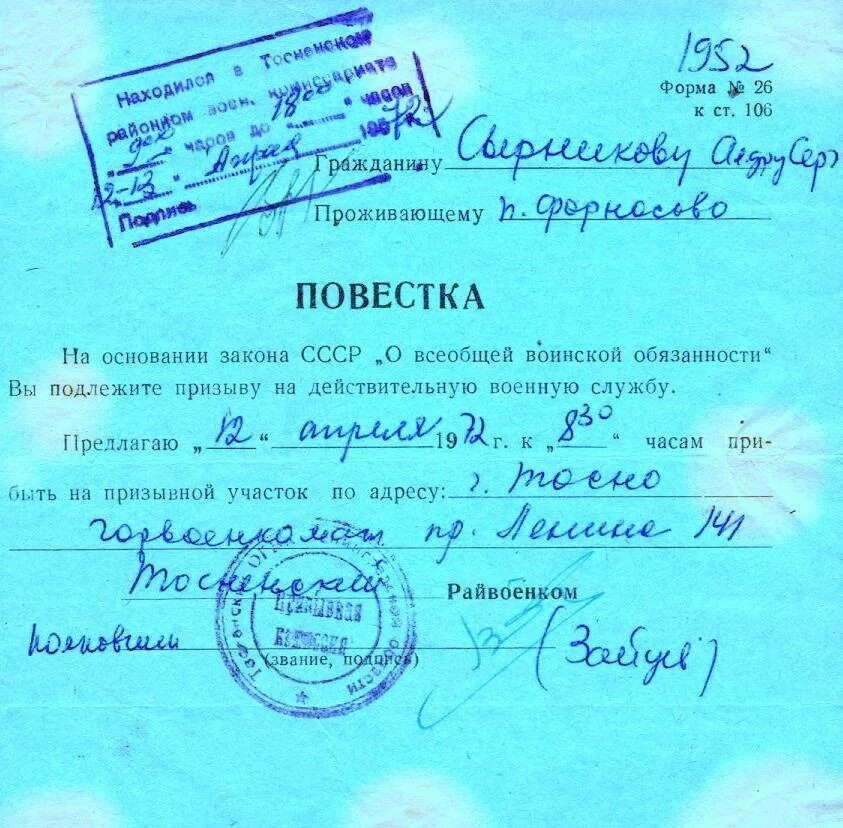 Находился в Тосненском
районном воен. комиссариате
"9 00" часов до "18 00" часов
"12-13" Апрель 1972
Подпись
1952
Форма № 26
к ст. 106
Гражданину Сырникову
Проживающему п. Форносово
ПОВЕСТКА
На основании закона СССР „О всеобщей воинской обязанности“
Вы подлежите призыву на действительную военную службу.
Предлагаю „12“ апреля 1972 г. к „8 30“ часам при-
быть на призывной участок по адресу: г. Тосно
горвоенкомат пр. Ленина 141
Тосненский Райвоенком
(звание, подпись) (Зайцев)
Призывная
комиссия